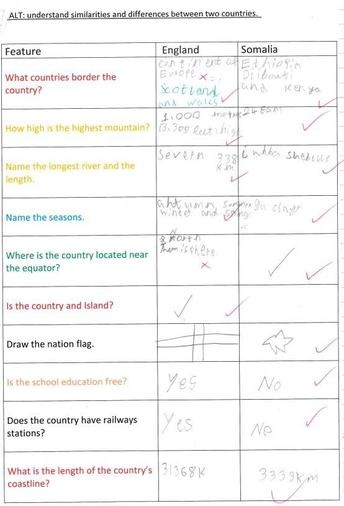 ALT: understand similarities and differences between two countries.
Feature England Somalia
What countries border the country?
continent of Europe
Scotland and wales
Ethiopia Djibouti and Kenya
How high is the highest mountain?
1,000
Name the longest river and the length.
Severn 338 km
Name the seasons.
autumn, summer winter and spring
Where is the country located near the equator?
Is the country and Island?
Draw the nation flag.
Is the school education free?
Yes No
Does the country have railways stations?
Yes No
What is the length of the country's coastline?
31368K 3333km